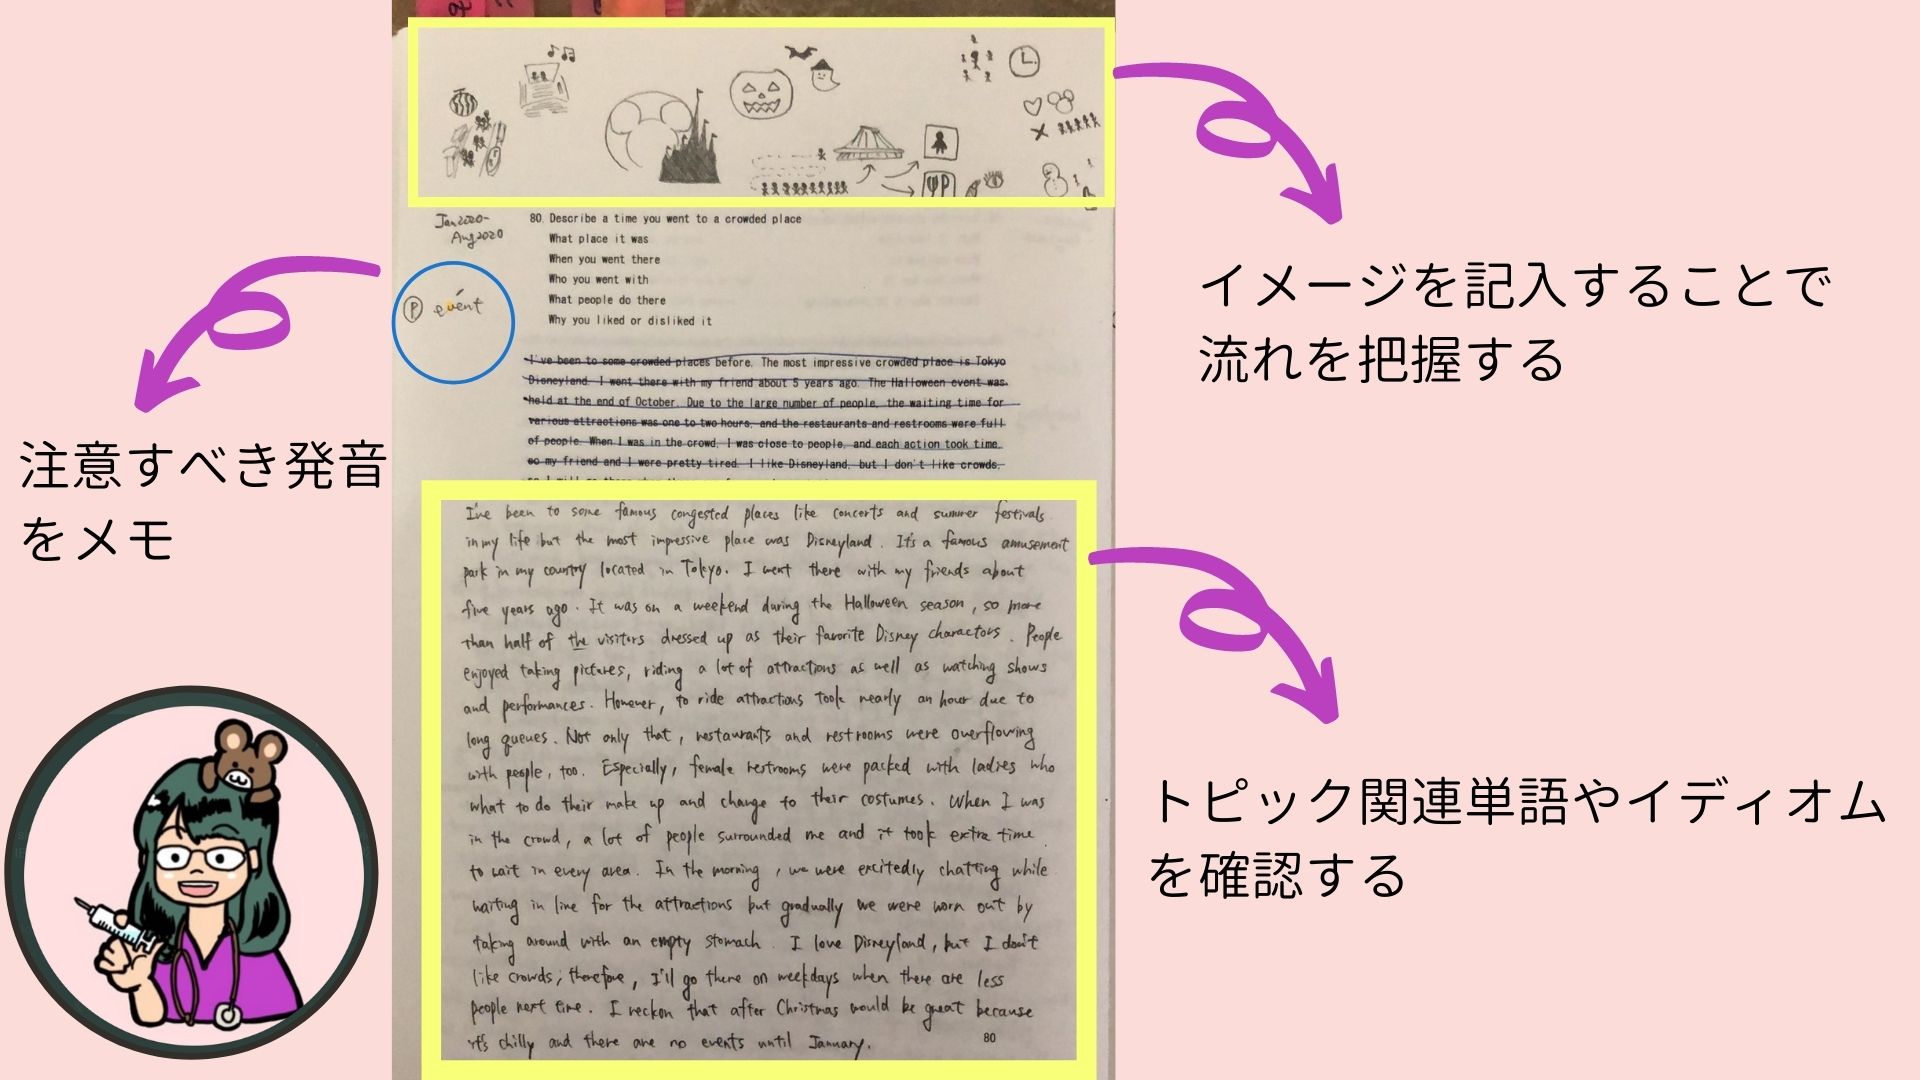 Jan 2020-
Aug 2020
80. Describe a time you went to a crowded place
What place it was
When you went there
Who you went with
What people do there
Why you liked or disliked it
Ⓟ evént
I've been to some crowded places before. The most impressive crowded place is Tokyo
Disneyland. I went there with my friend about 5 years ago. The Halloween event was
held at the end of October. Due to the large number of people, the waiting time for
various attractions was one to two hours, and the restaurants and restrooms were full
of people. When I was in the crowd, I was close to people, and each action took time.
so my friend and I were pretty tired. I like Disneyland, but I don't like crowds,
I've been to some famous congested places like concerts and summer festivals
in my life but the most impressive place was Disneyland. It's a famous amusement
park in my country located in Tokyo. I went there with my friends about
five years ago. It was on a weekend during the Halloween season, so more
than half of the visitors dressed up as their favorite Disney charactors. People
enjoyed taking pictures, riding a lot of attractions as well as watching shows
and performances. However, to ride attractions took nearly an hour due to
long queues. Not only that, restaurants and restrooms were overflowing
with people, too. Especially, female restrooms were packed with ladies who
what to do their make up and change to their costumes. When I was
in the crowd, a lot of people surrounded me and it took extra time
to wait in every area. In the morning, we were excitedly chatting while
waiting in line for the attractions but gradually we were worn out by
taking around with an empty stomach. I love Disneyland, but I don't
like crowds; therefore, I'll go there on weekdays when there are less
people next time. I reckon that after Christmas would be great because
it's chilly and there are no events until January.
80
イメージを記入することで
流れを把握する
注意すべき発音
をメモ
トピック関連単語やイディオム
を確認する